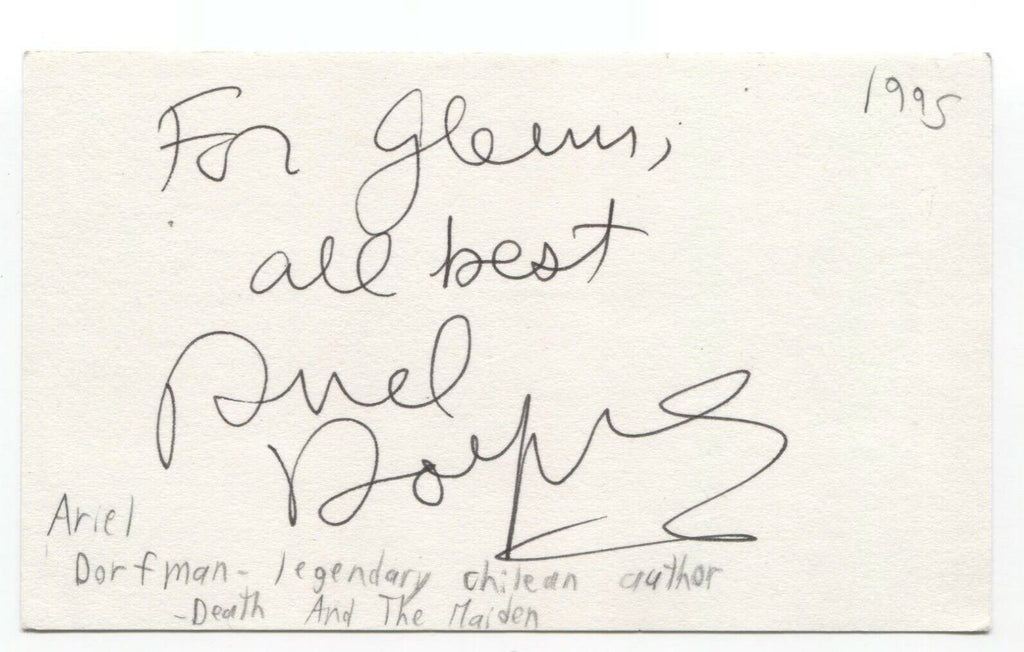 1995
For Glenn,
all best
Ariel
Dorfman
Ariel
Dorfman - legendary chilean author
- Death And The Maiden